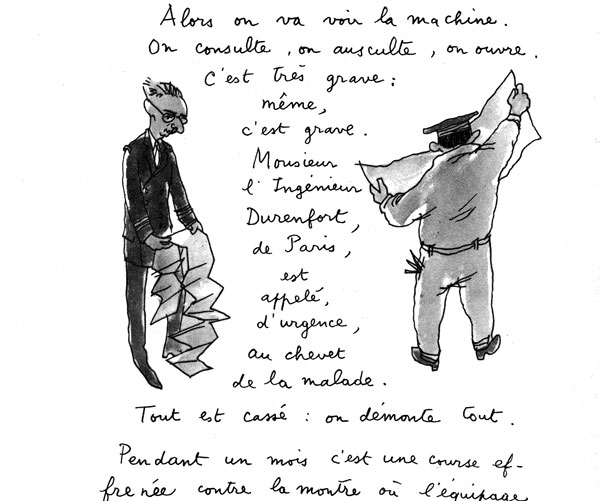 Alors on va voir la machine.
On consulte, on ausculte, on ouvre.
C'est très grave :
même,
c'est grave.
Monsieur
l'Ingénieur
Durenfort,
de Paris,
est
appelé,
d'urgence,
au chevet
de la malade.
Tout est cassé : on démonte tout.
Pendant un mois c'est une course ef-
frenée contre la montre où l'équipage